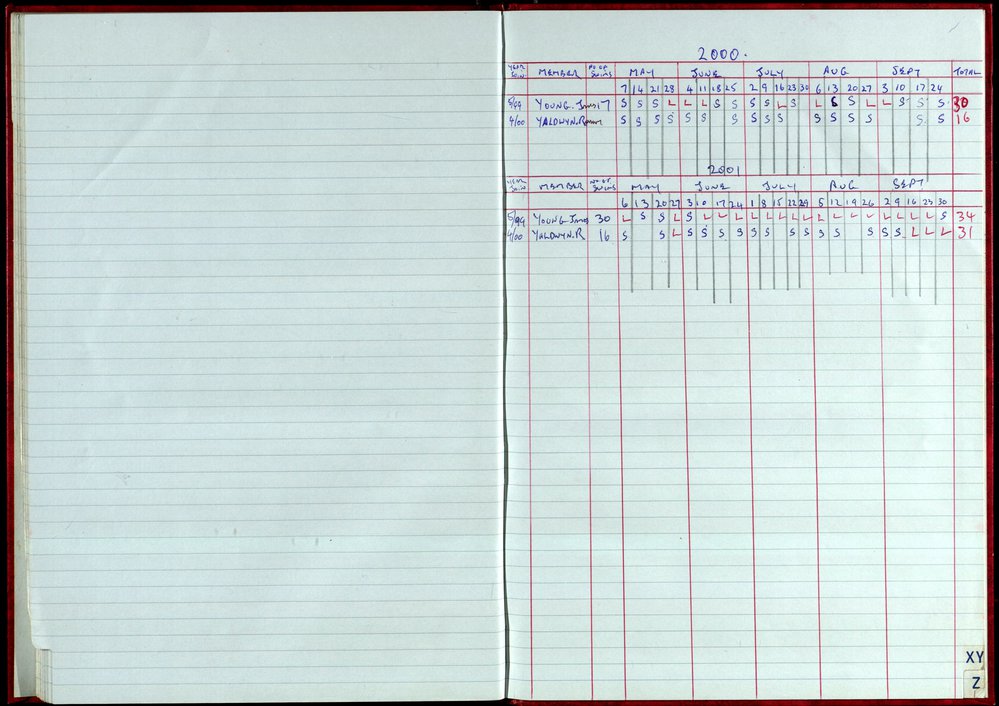 2000.
YEAR JOIN MEMBER NO OF SWIMS MAY JUNE JULY AUG SEPT TOTAL
7 14 21 28 4 11 18 25 2 9 16 23 30 6 13 20 27 3 10 17 24
5/99 YOUNG. James 17 S S S L L L S S S S L S L S S L L S S S 30
4/00 YALDWYN. R S S S S S S S S S S S S S S S S 16
2001
YEAR JOIN MEMBER NO OF SWIMS MAY JUNE JULY AUG SEPT
6 13 20 27 3 10 17 24 1 8 15 22 29 5 12 19 26 2 9 16 23 30
5/99 YOUNG James 30 L S S L S L L L L L L L L L L L L L L L L S 34
4/00 YALDWYN. R 16 S S L S S S S S S S S S S S S S L L L 31
XY
Z